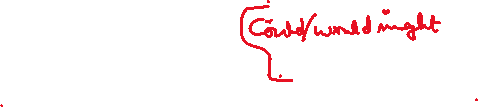 Could/would might